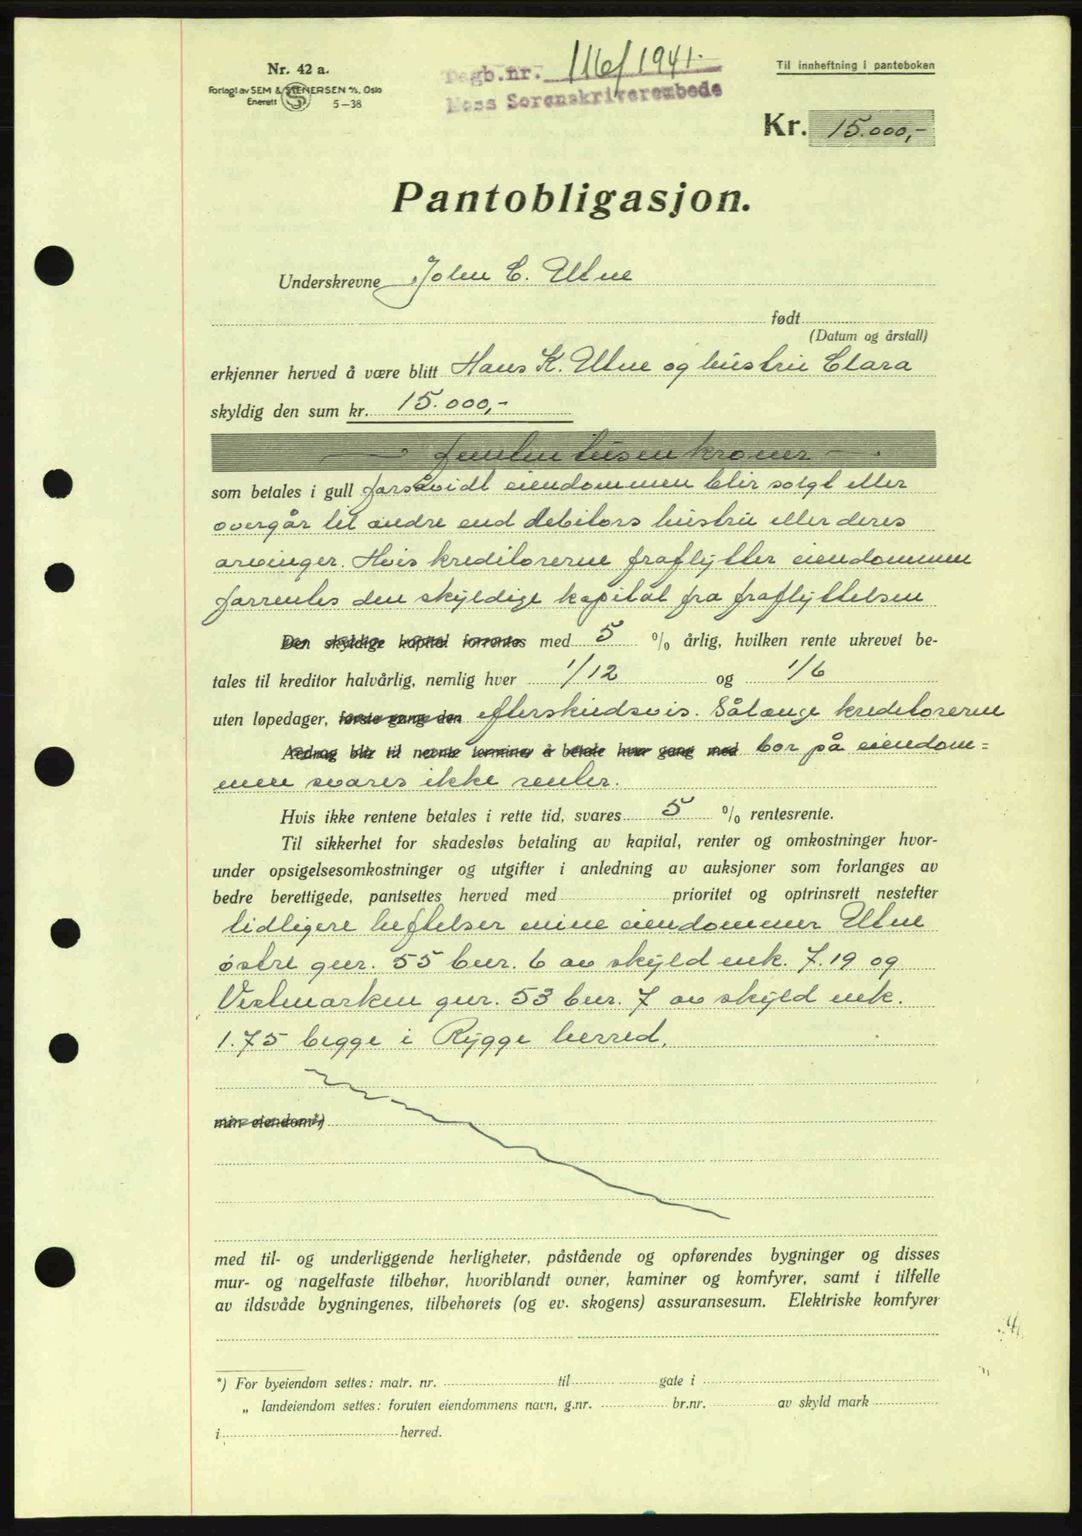 Nr. 42 a.
Forlagt av SEM & STENERSEN A/S, Oslo
Enerett 5-38
Dagb.nr. 116/1941.
Moss Sorenskriverembede
Til innheftning i panteboken
Kr. 15.000,-
Pantobligasjon.
Underskrevne John E. Utne
født
(Datum og årstall)
erkjenner herved å være blitt Hans K. Utne og hustru Clara
skyldig den sum kr. 15.000,-
femten tusen kroner
som betales i gull forsåvidt eiendommen blir solgt eller
overgår til andre end debitors hustru eller deres
arvinger. Hvis kreditorerne fraflytter eiendommen
forrentes den skyldige kapital fra fraflyttelsen
Den skyldige kapital forrentes med 5 % årlig, hvilken rente ukrevet be-
tales til kreditor halvårlig, nemlig hver 1/12 og 1/6
uten løpedager, første gang den efterskudsvis. Sålænge kreditorerne
Avdrag blir til nevnte terminer å betale hver gang med bor på eiendom=
men svares ikke renter.
Hvis ikke rentene betales i rette tid, svares 5 % rentesrente.
Til sikkerhet for skadesløs betaling av kapital, renter og omkostninger hvor-
under opsigelsesomkostninger og utgifter i anledning av auksjoner som forlanges av
bedre berettigede, pantsettes herved med prioritet og optrinsrett nestefter
tidligere heftelser mine eiendommer Utne
østre gnr. 55 bnr. 6 av skyld mk. 7.19 og
Vestmarken gnr. 53 bnr. 7 av skyld mk.
1.75 begge i Rygge herred.
min eiendom*)
med til- og underliggende herligheter, påstående og opførendes bygninger og disses
mur- og nagelfaste tilbehør, hvoriblandt ovner, kaminer og komfyrer, samt i tilfelle
av ildsvåde bygningenes, tilbehørets (og ev. skogens) assuransesum. Elektriske komfyrer
*) For byeiendom settes: matr. nr. til gate i
„ landeiendom settes: foruten eiendommens navn, g.nr. br.nr. av skyld mark
i herred.